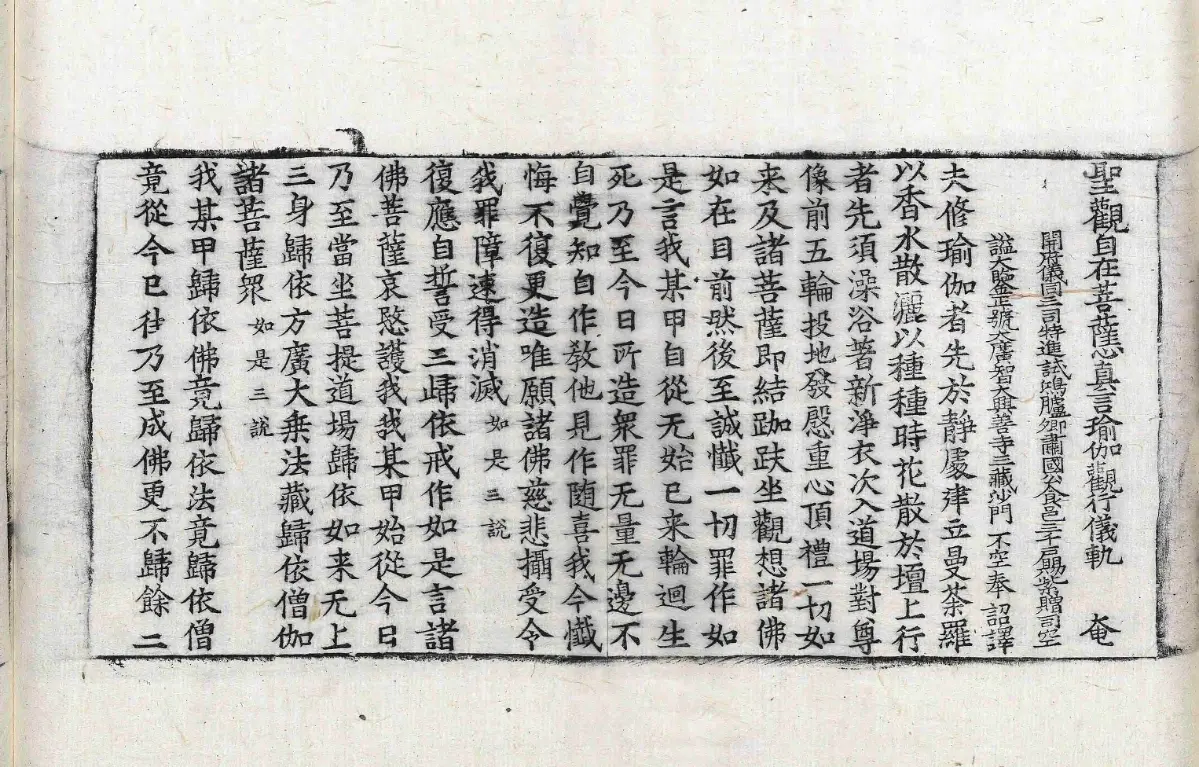 聖觀自在菩薩心真言瑜伽觀行儀軌　奄
開府儀同三司特進試鴻臚卿肅國公食邑三千戶賜紫贈司空
謚大鑒正號大廣智大興善寺三藏沙門不空奉　詔譯
夫修瑜伽者先於靜處建立曼荼羅
以香水散灑以種種時花散於壇上行
者先須澡浴著新淨衣次入道場對尊
像前五輪投地發慇重心頂禮一切如
来及諸菩薩即結跏趺坐觀想諸佛
如在目前然後至誠懺一切罪作如
是言我某甲自從无始已来輪迴生
死乃至今日所造衆罪无量无邊不
自覺知自作教他見作随喜我今懺
悔不復更造唯願諸佛慈悲攝受令
我罪障速得消滅如是三說
復應自誓受三歸依戒作如是言諸
佛菩薩哀愍護我我某甲始從今日
乃至當坐菩提道場歸依如来无上
三身歸依方廣大乗法藏歸依僧伽
諸菩薩衆如是三說
我某甲歸依佛竟歸依法竟歸依僧
竟從今已往乃至成佛更不歸餘二